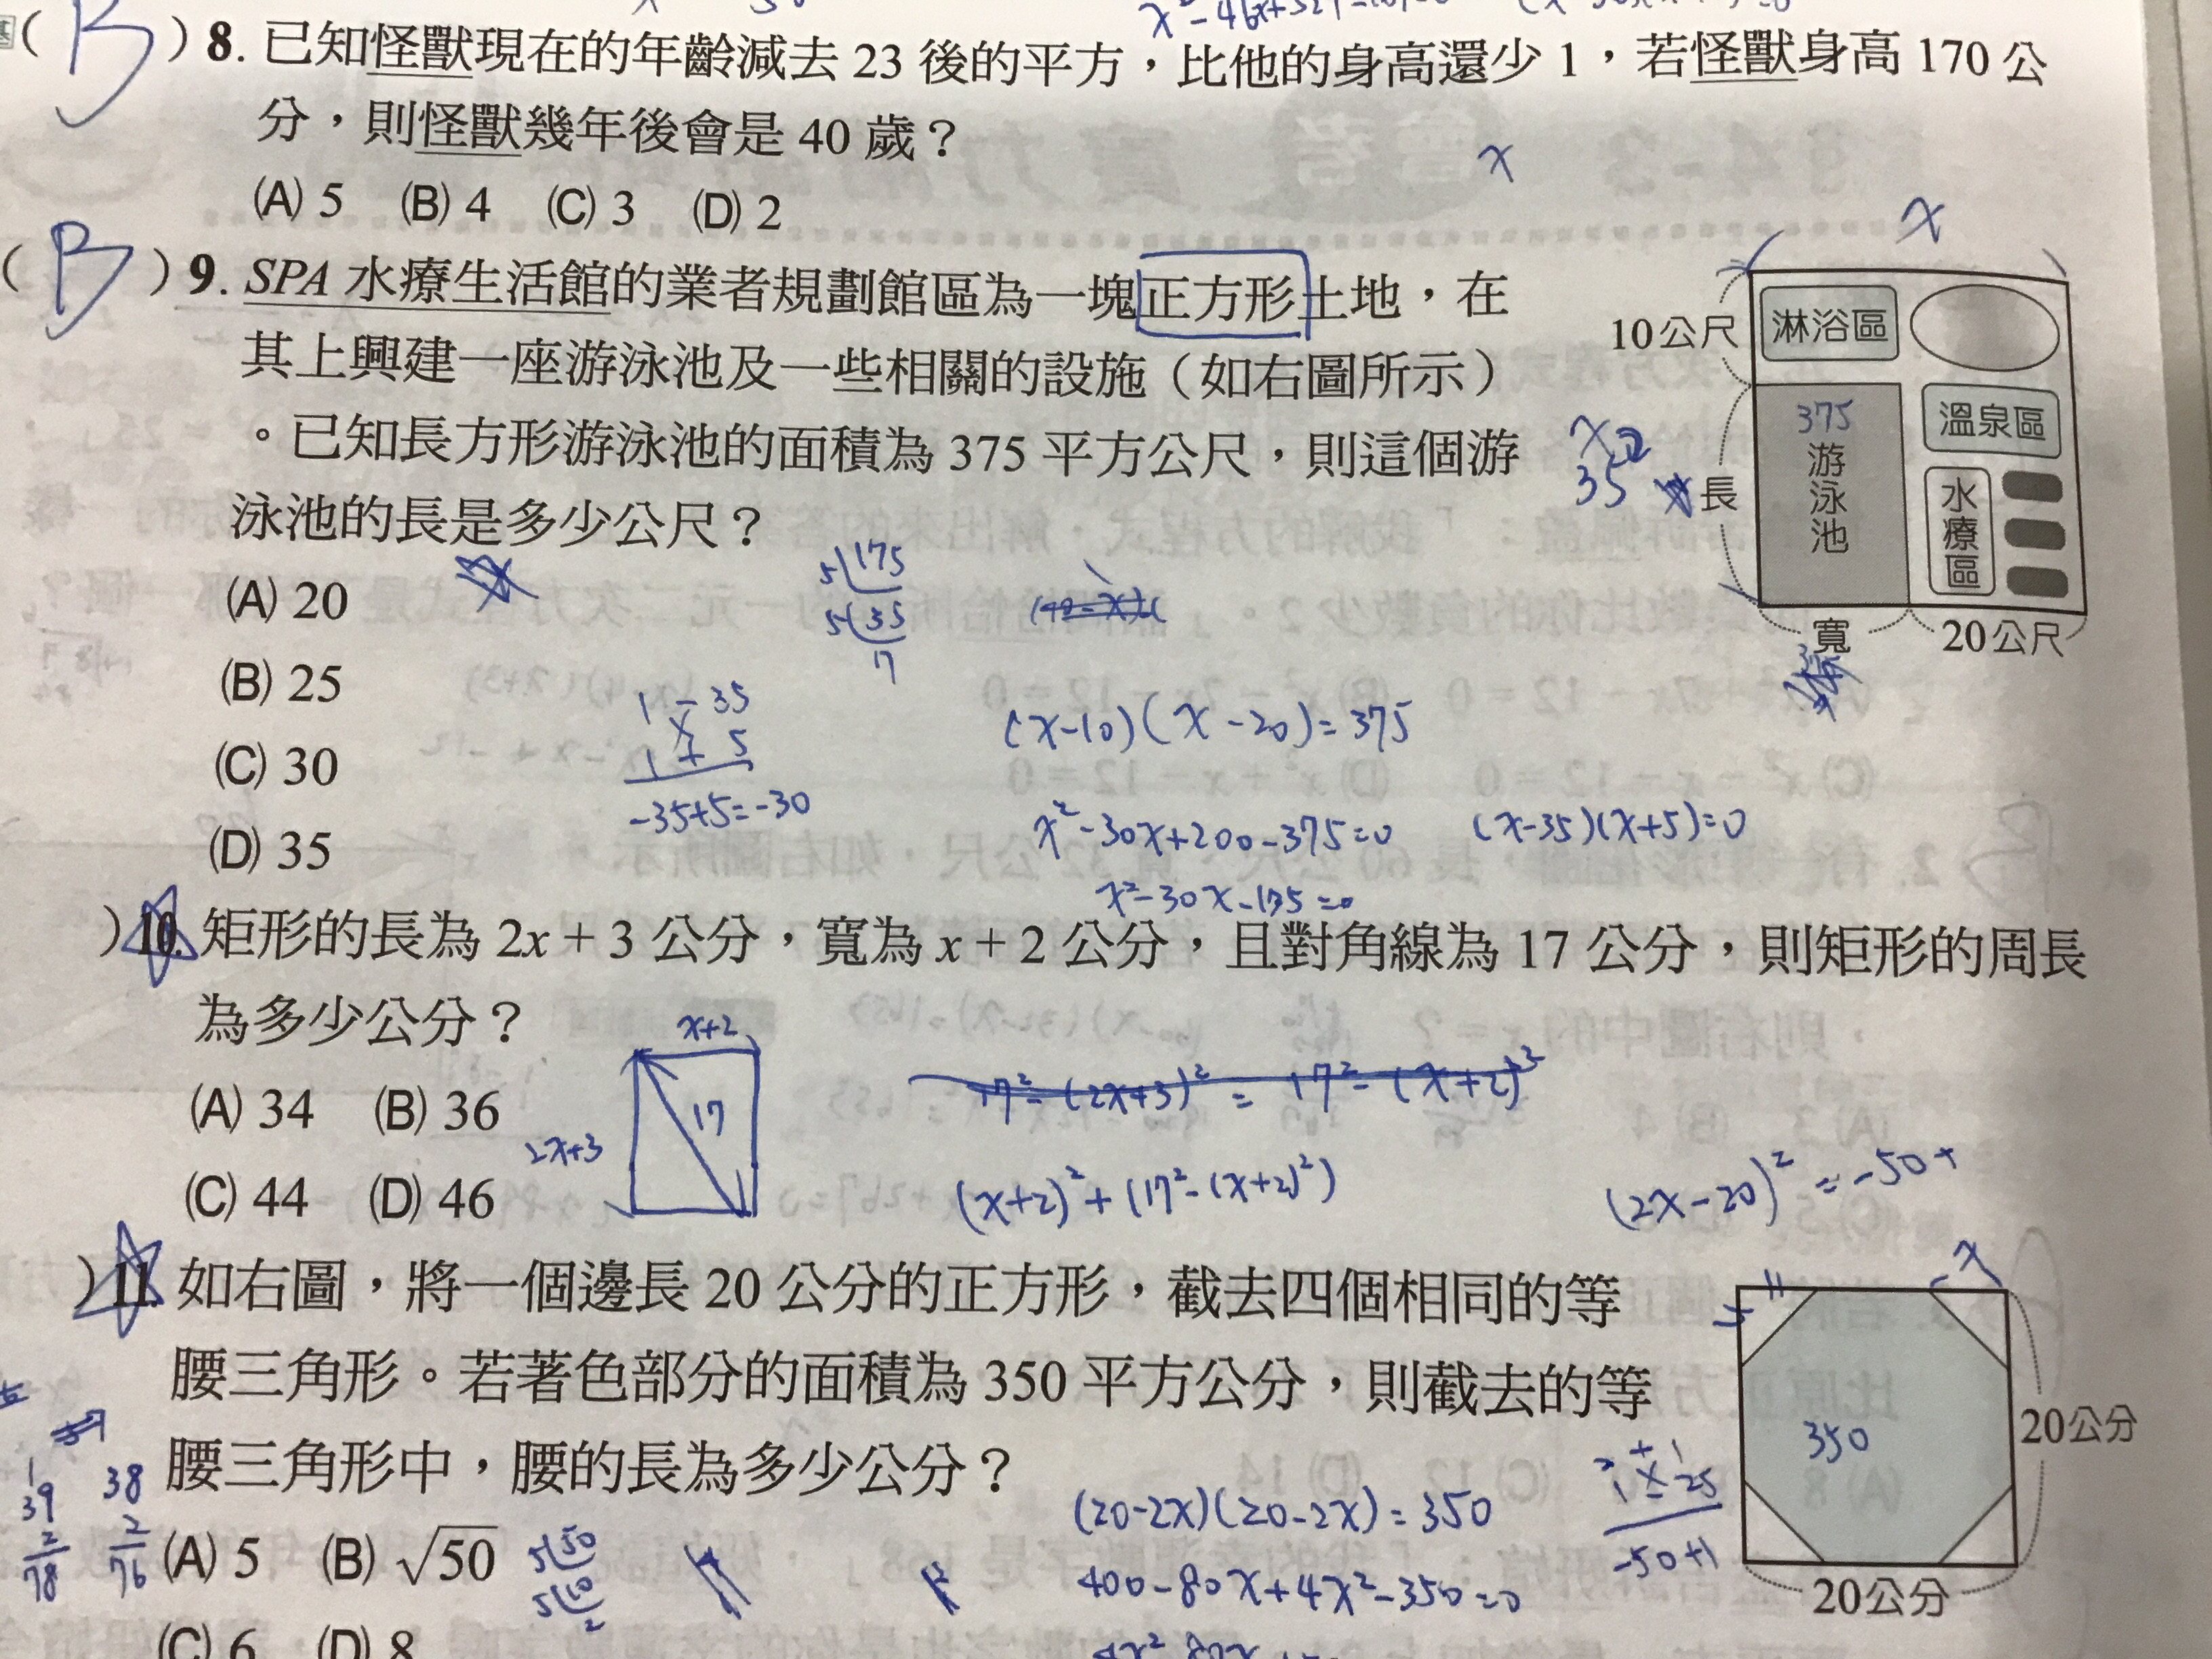 x² - 46x + 52
(B)8. 已知怪獸現在的年齡減去 23 後的平方，比他的身高還少 1，若怪獸身高 170 公
分，則怪獸幾年後會是 40 歲？
(A) 5 (B) 4 (C) 3 (D) 2
x
(B)9. SPA 水療生活館的業者規劃館區為一塊正方形土地，在
其上興建一座游泳池及一些相關的設施（如右圖所示）
。已知長方形游泳池的面積為 375 平方公尺，則這個游
泳池的長是多少公尺？
(A) 20
(B) 25
(C) 30
(D) 35
x
10公尺
淋浴區
375
游泳池
溫泉區
水療區
長
寬
20公尺
35
5 175
5 35
7
1 - 35
1 + 5
-35+5=-30
(x-10)(x-20)=375
x²-30x+200-375=0
(x-35)(x+5)=0
x²-30x-175=0
)10. 矩形的長為 2x + 3 公分，寬為 x + 2 公分，且對角線為 17 公分，則矩形的周長
為多少公分？
(A) 34 (B) 36
(C) 44 (D) 46
x+2
2x+3
17
17²-(2x+3)² = 17²-(x+2)²
(x+2)²+(17²-(x+2)²)
(2x-20)²=-50+
)11. 如右圖，將一個邊長 20 公分的正方形，截去四個相同的等
腰三角形。若著色部分的面積為 350 平方公分，則截去的等
腰三角形中，腰的長為多少公分？
(A) 5 (B) √50
(C) 6 (D) 8
x
350
20公分
20公分
39
2
78
38
2
76
5 50
5 10
2
(20-2x)(20-2x)=350
400-80x+4x²-350=0
-50+1